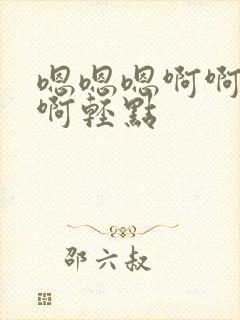 嗯嗯嗯啊啊
啊輕點
邵六叔